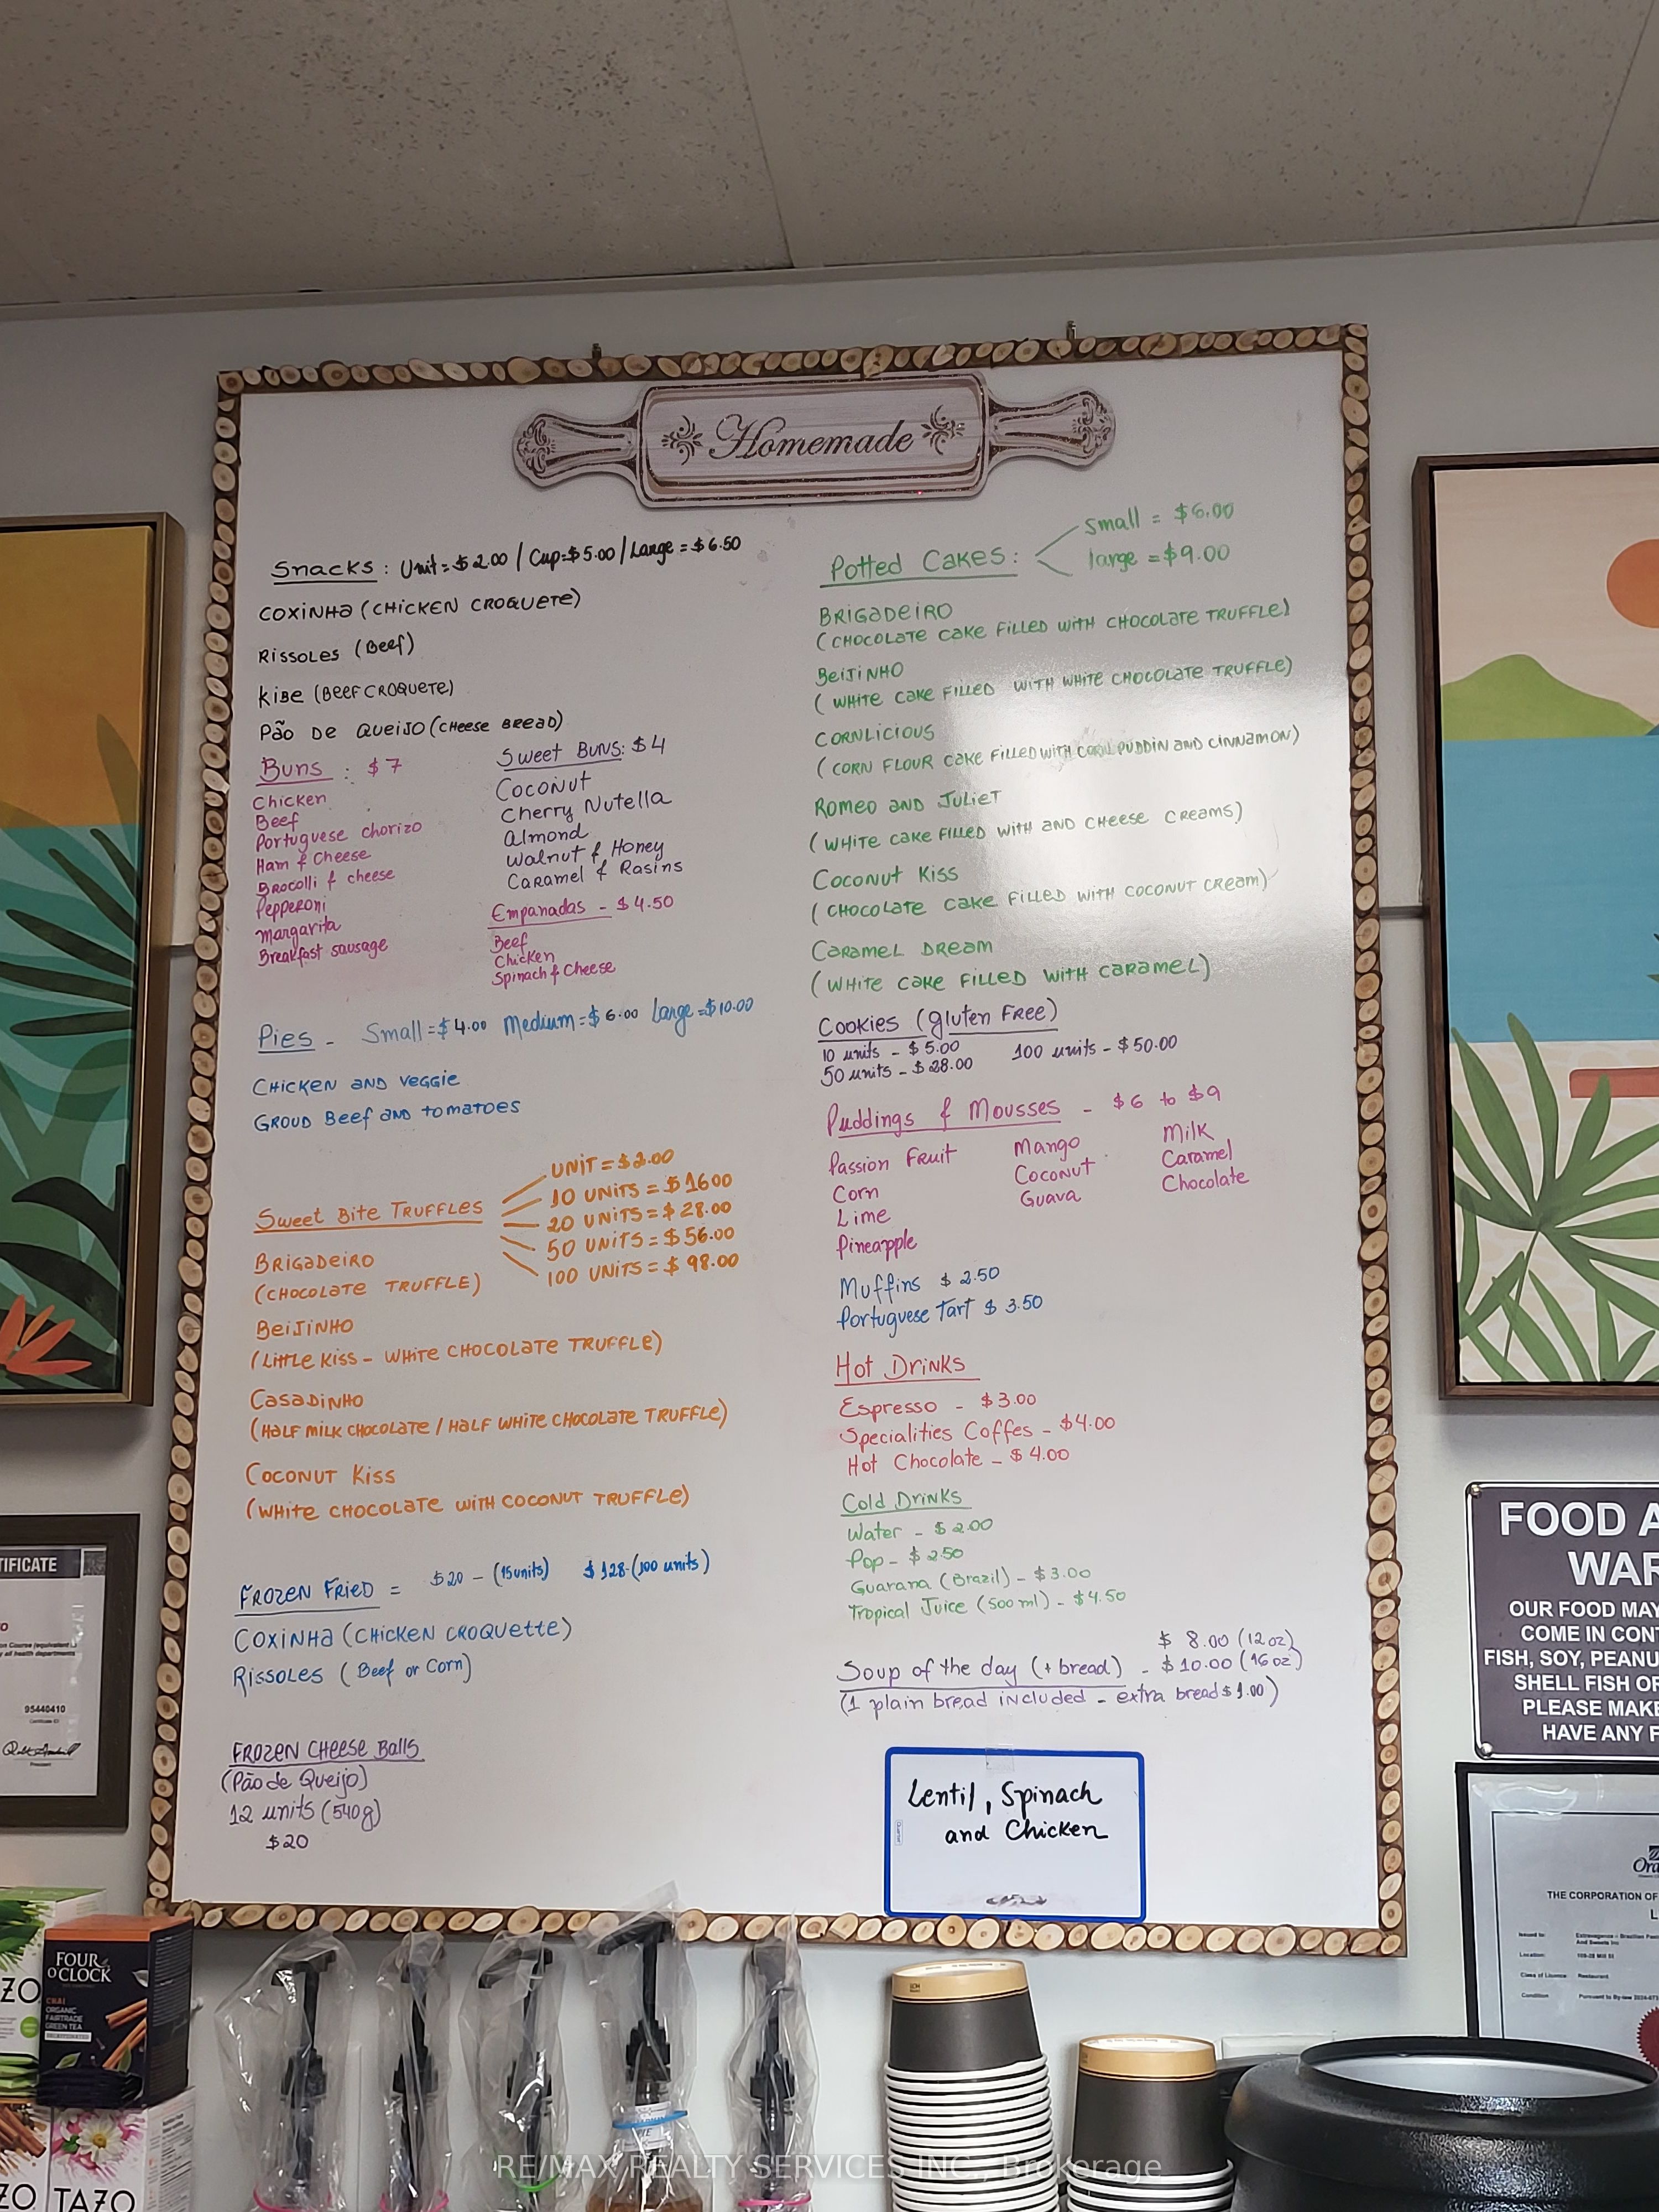 Homemade
Snacks : Unit = $2.00 / Cup = $5.00 / Large = $6.50
COXINHA (CHICKEN CROQUETE)
RISSOLES (Beef)
KIBE (BEEF CROQUETE)
PÃO DE QUEIJO (CHEESE BREAD)
Buns : $7
Chicken
Beef
Portuguese chorizo
Ham & Cheese
Brocolli & cheese
Pepperoni
Margarita
Breakfast sausage
Sweet Buns: $4
Coconut
Cherry Nutella
Almond
Walnut & Honey
Caramel & Rasins
Empanadas - $4.50
Beef
Chicken
Spinach & Cheese
Pies - Small = $4.00 Medium = $6.00 Large = $10.00
CHICKEN AND VEGGIE
GROUD BEEF AND TOMATOES
Sweet Bite Truffles
UNIT = $2.00
10 UNITS = $1600
20 UNITS = $28.00
50 UNITS = $56.00
100 UNITS = $98.00
BRIGADEIRO
(CHOCOLATE TRUFFLE)
BEIJINHO
(LITTLE KISS - WHITE CHOCOLATE TRUFFLE)
CASADINHO
(HALF MILK CHOCOLATE / HALF WHITE CHOCOLATE TRUFFLE)
COCONUT KISS
(WHITE CHOCOLATE WITH COCONUT TRUFFLE)
FROZEN FRIED = $20 - (15units) $128-(100 units)
COXINHA (CHICKEN CROQUETTE)
RISSOLES (Beef or Corn)
FROZEN CHEESE Balls
(Pão de Queijo)
12 units (540g)
$20
Potted Cakes:
small = $6.00
large = $9.00
BRIGADEIRO
(CHOCOLATE CAKE FILLED WITH CHOCOLATE TRUFFLE)
BEIJINHO
(WHITE CAKE FILLED WITH WHITE CHOCOLATE TRUFFLE)
CORNLICIOUS
(CORN FLOUR CAKE FILLED WITH CORN PUDDIN AND CINNAMON)
ROMEO AND JULIET
(WHITE CAKE FILLED WITH AND CHEESE CREAMS)
COCONUT KISS
(CHOCOLATE CAKE FILLED WITH COCONUT CREAM)
CARAMEL DREAM
(WHITE CAKE FILLED WITH CARAMEL)
Cookies (Gluten Free)
10 units - $5.00 100 units - $50.00
50 units - $28.00
Puddings & Mousses - $6 to $9
Passion Fruit
Corn
Lime
Pineapple
Mango
Coconut
Guava
Milk
Caramel
Chocolate
Muffins $2.50
Portuguese Tart $3.50
Hot Drinks
Espresso - $3.00
Specialities Coffes - $4.00
Hot Chocolate - $4.00
Cold Drinks
Water - $2.00
Pop - $2.50
Guarana (Brazil) - $3.00
Tropical Juice (500 ml) - $4.50
$8.00 (12oz)
Soup of the day (+ bread) - $10.00 (16oz)
(1 plain bread included - extra bread $1.00)
Lentil, Spinach
and Chicken
FOOD A
WAR
OUR FOOD MAY
COME IN CONT
FISH, SOY, PEANU
SHELL FISH OR
PLEASE MAKE
HAVE ANY F
TIFICATE
95440410
THE CORPORATION OF
Issued to:
Location:
Class of Licence Restaurant
Condition
FOUR
O'CLOCK
CHAI
ORGANIC
FAIRTRADE
GREEN TEA
ZO
ZO
TAZO
RE/MAX REALTY SERVICES INC., Brokerage